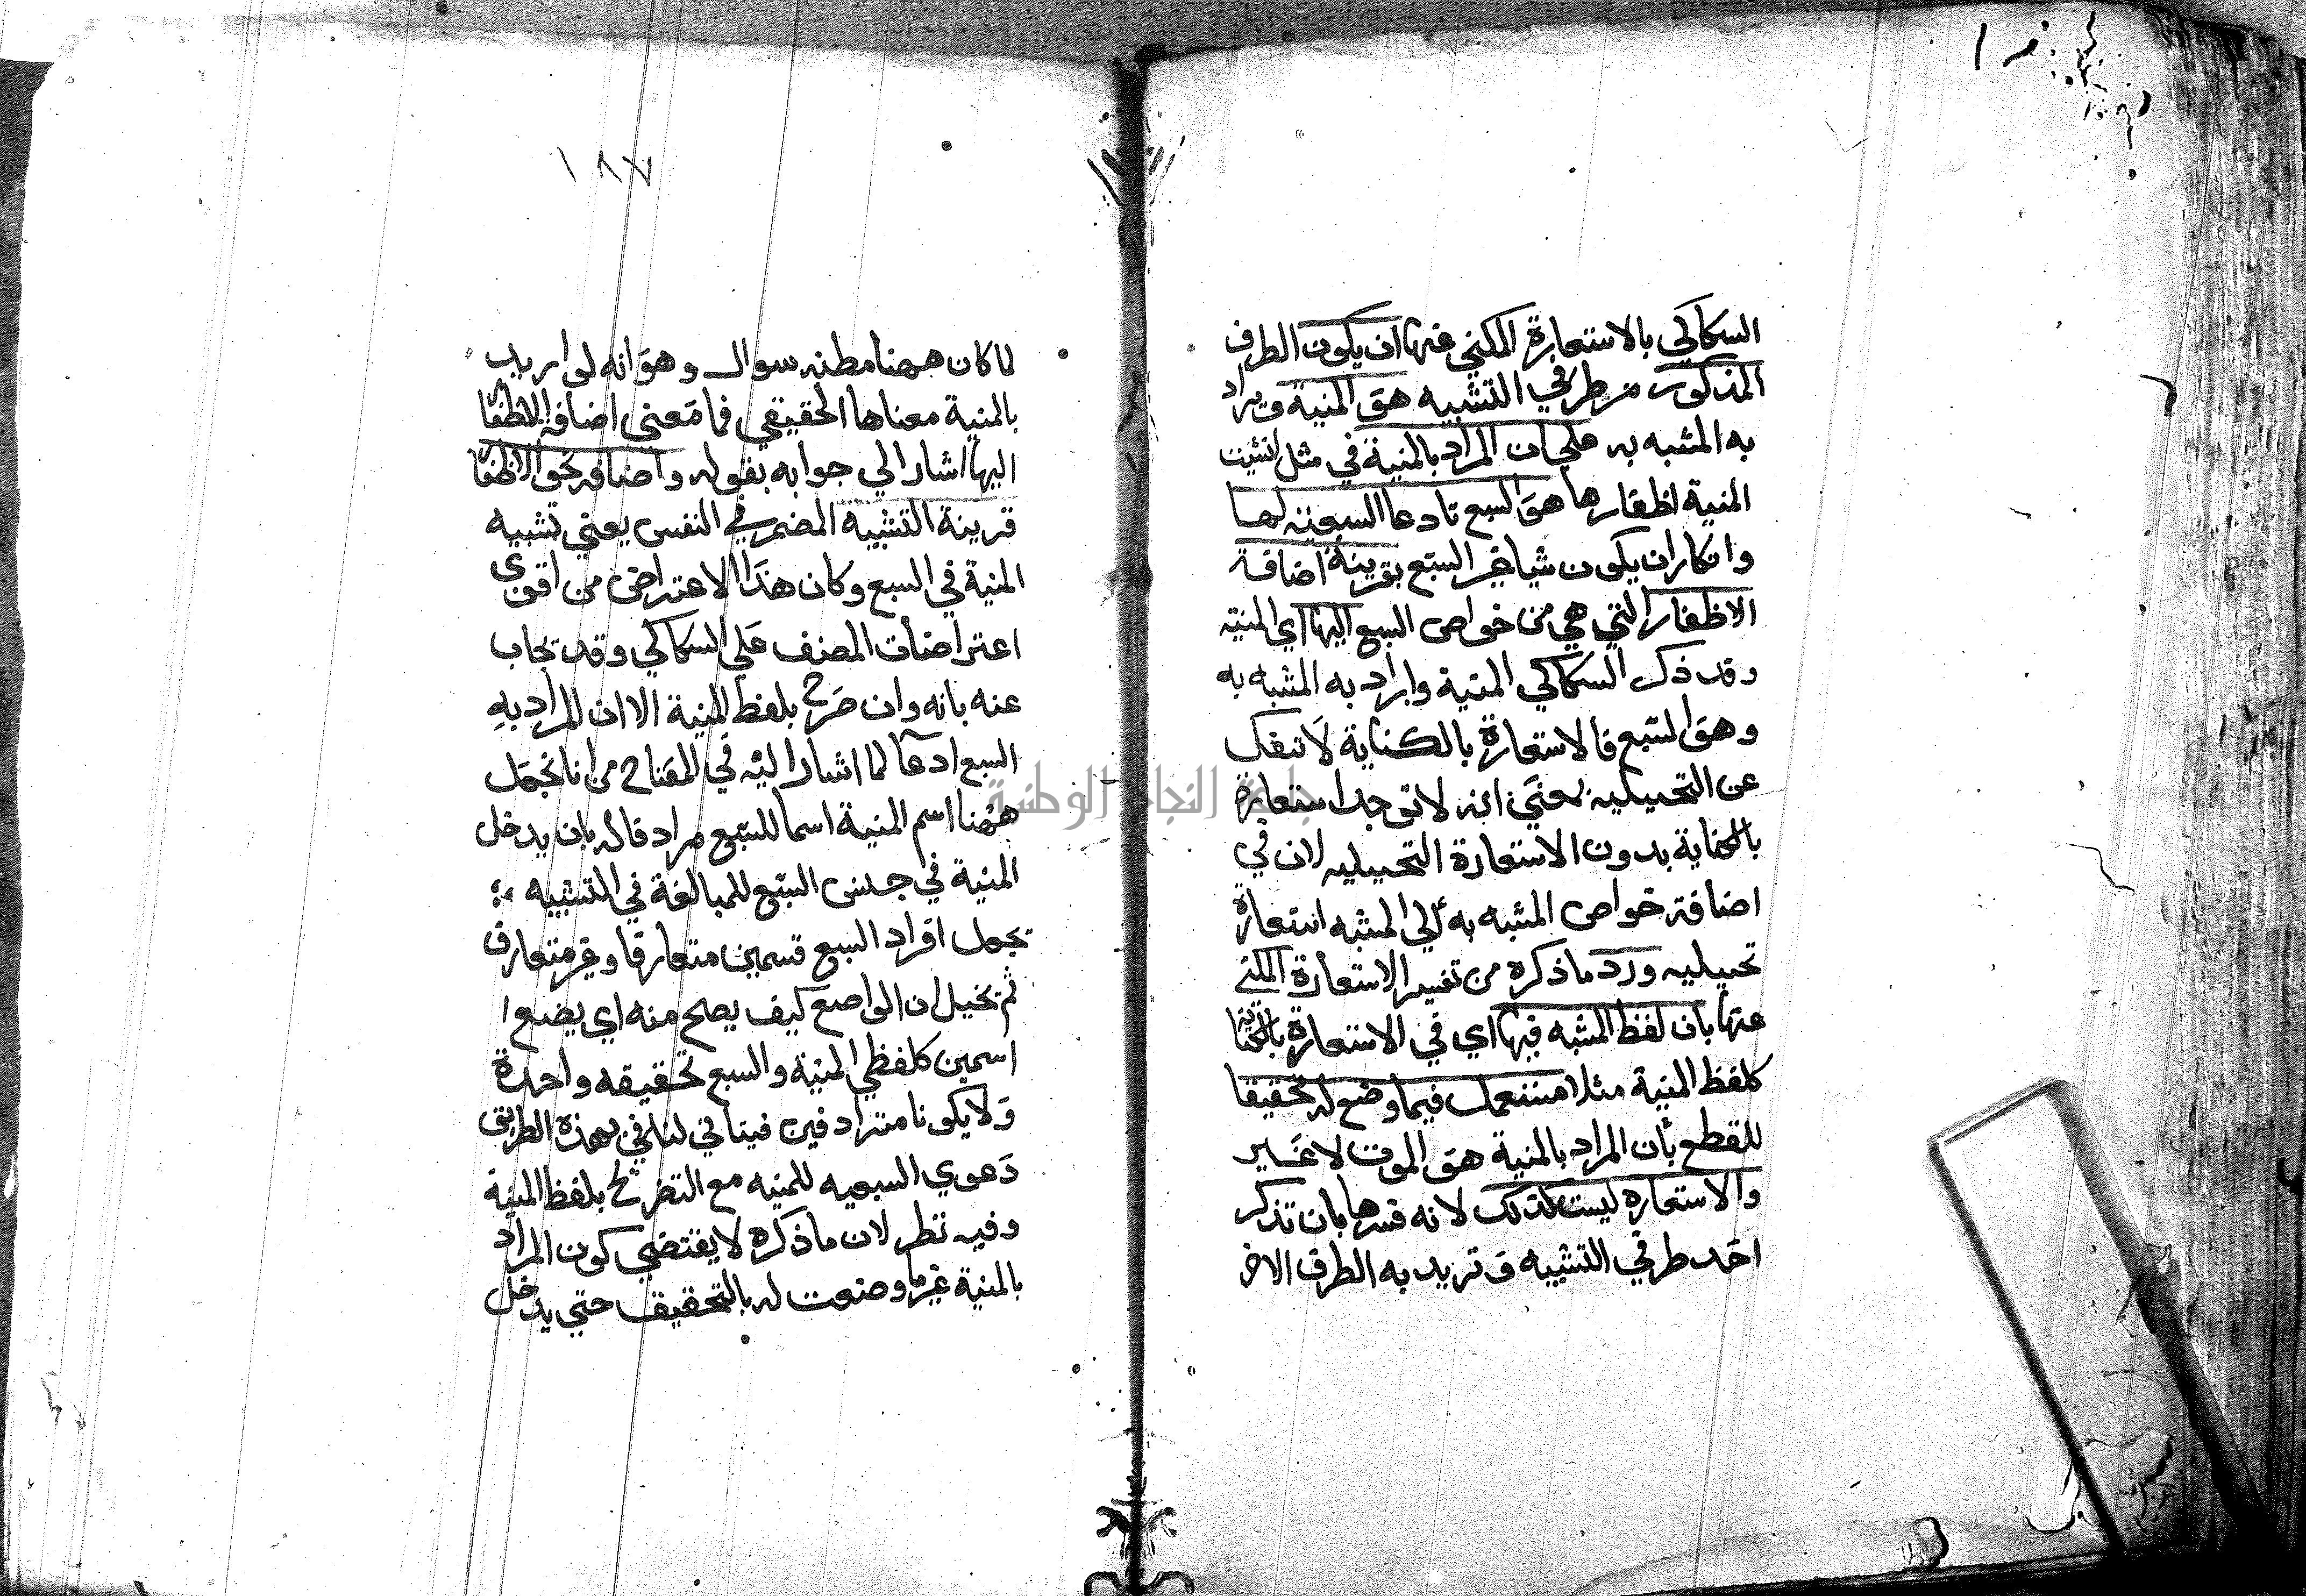 السكاكي بالاستعارة المكني عنها ان يكون الطرف
المذكور من طرفي التشبيه هو المنية ويراد
به المشبه به علي ان المراد بالمنية في مثل انشبت
المنية اظفارها هو السبع بادعا السبعية لها
وانكار ان يكون شيا غير السبع بقرينة اضافة
الاظفار التي هي من خواص السبع اليها اي المنية
وقد ذكر السكاكي المنية واراد به المشبه به
وهو السبع فالاستعارة بالكناية لا تنفك
عن التخييلية بمعني انه لا توجد استعارة
بالكناية بدون الاستعارة التخييلية لان في
اضافة خواص المشبه به الي المشبه استعارة
تخييلية ورد ما ذكره من تفسير الاستعارة المكني
عنها بان لفظ المشبه فيها اي في الاستعارة بالكناية
كلفظ المنية مثلا مستعمل فيما وضع له تحقيقا
للقطع بأن المراد بالمنية هو الموت لا غير
والاستعاره ليست كذلك لانه فسرها بان تذكر
احد طرفي التشبيه وتريد به الطرف الاخر
١٨٧
لما كان ههنا مظنه سوال وهو انه لو اريد
بالمنية معناها الحقيقي فما معني اضافة الاظفار
اليها اشار الي جوابه بقوله واضافه نحو الاظفار
قرينة التشبيه المضمر في النفس يعني تشبيه
المنية في السبع وكان هذا الاعتراض من اقوي
اعتراضات المصنف علي السكاكي وقد يجاب
عنه بانه وان صرح بلفظ المنية الا ان المراد به
السبع ادعآ لما اشار اليه في المفتاح من انا نجعل
ههنا اسم المنية اسما للسبع مرادفا له بان يدخل
المنية في جنس السبع للمبالغة في التشبيه
بجعل افراد السبع قسمين متعارفا وغير متعارف
ثم نخيل ان الواضع كيف يصح منه اي يضع ا
اسمين كلفظي المنية والسبع لحقيقه واحدة
ولا يكونا مترادفين فيتاتي لنا في بهذه الطريق
دعوي السبعيه للمنيه مع التصريح بلفظ المنية
وفيه نظر لان ما ذكره لا يقتضي كون المراد
بالمنية غير ما وضعت له بالتحقيق حتي يدخل
جامعة النجاح الوطنية